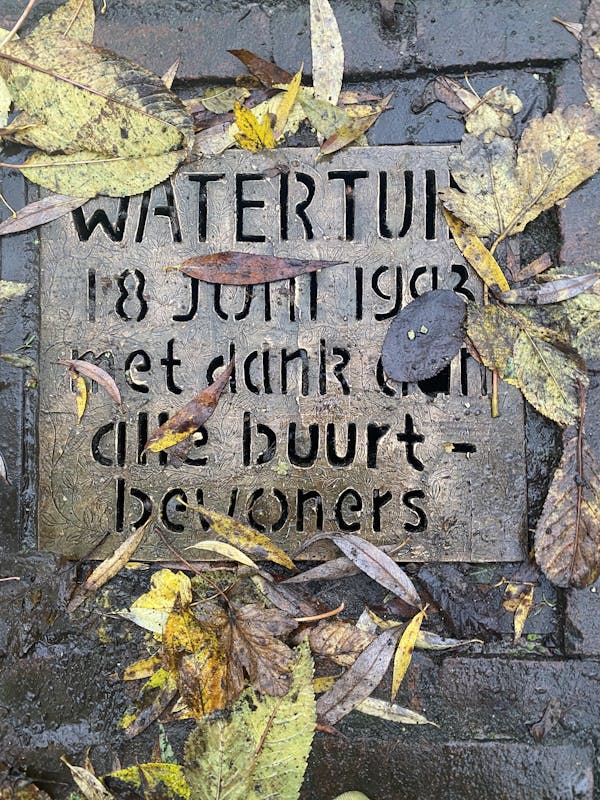 WATERTUIN
18 JUNI 1993
met dank aan
alle buurt-
bewoners